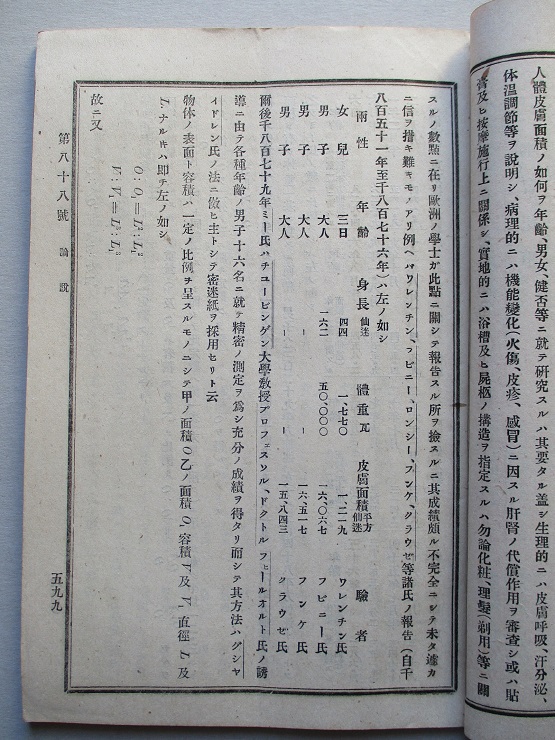 人體皮膚面積ノ如何ヲ年齡、男女、健否等ニ就テ研究スルハ其要タル盖シ生理的ニハ皮膚呼吸、汗分泌、
体溫調節等ヲ説明シ、病理的ニハ機能變化(火傷、皮疹、感冒)ニ因スル肝腎ノ代償作用ヲ審査シ或ハ貼
膏及ヒ按摩施行上ニ關係シ、實地的ニハ浴槽及ヒ屍柩ノ搆造ヲ指定スルハ勿論化粧、理髮(剃用)等ニ關
スルノ數點ニ在リ歐洲ノ學士ガ此點ニ關シテ報告スル所ヲ撿スルニ其成績頗ル不完全ニシテ未タ遽カ
ニ信ヲ措キ難キモノアリ例ヘバワレンチン、フビニー、ロンシー、フンケ、クラウゼ等諸氏ノ報告(自千
八百五十一年至千八百七十六年)ハ左ノ如シ
兩性 年齡 身長仙迷 體重瓦 皮膚面積平方仙迷 驗者
女兒 三日 四四 一、七七〇 一、二一九 ワレンチン氏
男子 大人 一六二 五〇、〇〇〇 一六、〇六七 フビニー氏
男子 大人 ー ー 一六、五一七 フンケ氏
男子 大人 ー ー 一五、八四三 クラウゼ氏
爾後千八百七十九年ミー氏ハチュービンゲン大學敎授プロフェスソル、ドクトル フ#ールオルト氏ノ誘
導ニ由テ各種年齡ノ男子十六名ニ就テ精密ノ測定ヲ爲シ充分ノ成績ヲ得タリ而シテ其方法ハグシヤ
イドレン氏ノ法ニ傚ヒ主トシテ密迷紙ヲ採用セリト云
物体ノ表面ト容積ハ一定ノ比例ヲ呈スルモノニシテ甲ノ面積O乙ノ面積O₁容積V及V₁直徑L及
L₁ナルキハ卽チ左ノ如シ
O : O₁ = L² : L₁²
V : V₁ = L³ : L₁³
故ニ又
第八十八號 論説
五九九